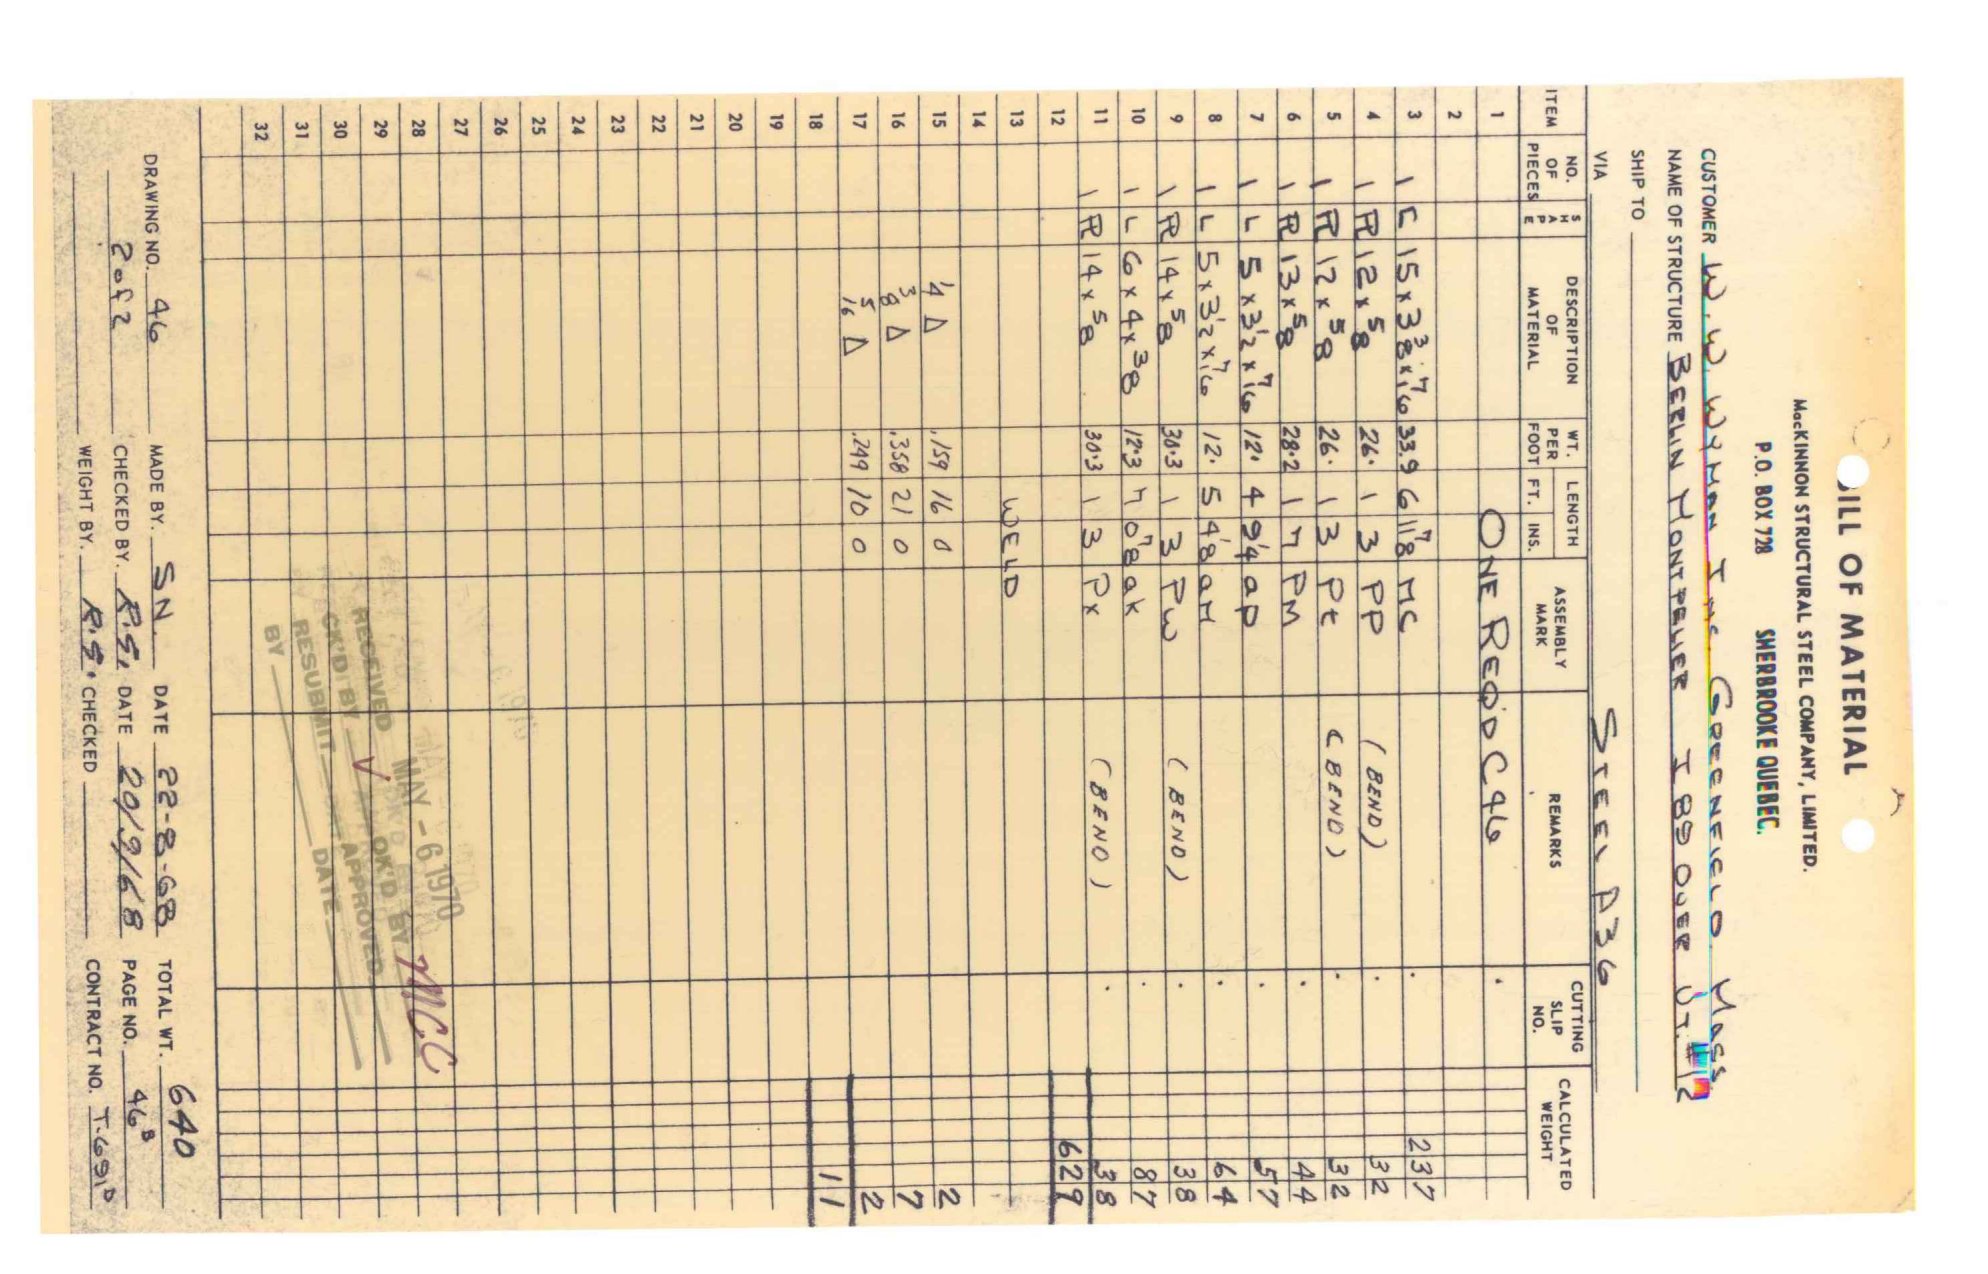 BILL OF MATERIAL
MacKINNON STRUCTURAL STEEL COMPANY, LIMITED.
P.O. BOX 728 SHERBROOKE QUEBEC.
CUSTOMER W. W. WYMAN INC. GREENFIELD MASS
NAME OF STRUCTURE BERLIN MONTPELIER I 89 OVER VT. #12
SHIP TO
VIA STEEL A36
ITEM NO. OF PIECES SHAPE DESCRIPTION OF MATERIAL WT. PER FOOT LENGTH FT. INS. ASSEMBLY MARK REMARKS CUTTING SLIP NO. CALCULATED WEIGHT
1 ONE REQ'D C46
2
3 1 C 15 x 3 3/8 x 7/16 33.9 6 11 7/8 MC 237
4 1 PL 12 x 5/8 26. 1 3 PP (BEND) 32
5 1 PL 12 x 5/8 26. 1 3 Pt (BEND) 32
6 1 PL 13 x 5/8 28.2 1 7 PM 44
7 1 L 5 x 3 1/2 x 7/16 12. 4 9 1/4 ap 57
8 1 L 5 x 3 1/2 x 7/16 12. 5 4 1/8 am 64
9 1 PL 14 x 5/8 30.3 1 3 Pw (BEND) 38
10 1 L 6 x 4 x 3/8 12.3 7 0 7/8 ak 87
11 1 PL 14 x 5/8 30.3 1 3 Px (BEND) 38
12 629
13 WELD
14
15 1/4 △ .159 16 0 2
16 3/8 △ .358 21 0 7
17 5/16 △ .249 10 0 2
18 11
19
20
21
22
23
24
25
26
27
28
29
30
31
32
MAY - 6 1970
RECEIVED
CK'D BY OK'D BY MCC
RESUBMIT APPROVED
BY DATE
DRAWING NO. 46 MADE BY. SN. DATE 22-8-68 TOTAL WT. 640
2 of 2 CHECKED BY. R.S. DATE 20/9/68 PAGE NO. 46B
WEIGHT BY. R.S. CHECKED CONTRACT NO. T-691D